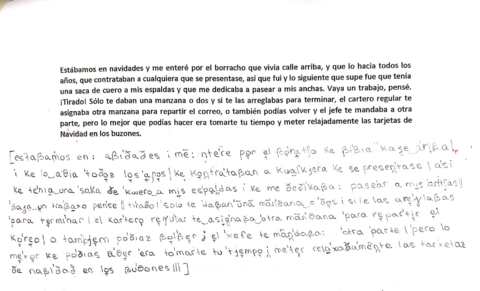 Estábamos en navidades y me enteré por el borracho que vivía calle arriba, y que lo hacía todos los
años, que contrataban a cualquiera que se presentase, así que fui y lo siguiente que supe fue que tenía
una saca de cuero a mis espaldas y que me dedicaba a pasear a mis anchas. Vaya un trabajo, pensé.
¡Tirado! Sólo te daban una manzana o dos y si te las arreglabas para terminar, el cartero regular te
asignaba otra manzana para repartir el correo, o también podías volver y el jefe te mandaba a otra
parte, pero lo mejor que podías hacer era tomarte tu tiempo y meter relajadamente las tarjetas de
Navidad en los buzones.
[estaβamos en: aβiðaðes i me: nteɾe poɾ el
i ke lo aθia toðos los aɲos | ke kontɾataβan a kualkjeɾa ke se pɾesentase | asi
ke tenia una saka ðe kweɾo a mis espaldas i ke me ðeðikaβa: paseaɾ a mis
un tɾaβaxo pense || tiɾaðo | solo te ðaβan una o ðos i si te las areglaβas
paɾa teɾminaɾ | el kaɾteɾo regulaɾ te asignaβa otɾa paɾa repaɾtiɾ el
koreo | o tambjem poðias βolβeɾ i el xefe te mandaβa: otɾa paɾte | peɾo lo
mexoɾ ke poðias aθeɾ eɾa tomaɾte tu tjempo i meteɾ relaxaðamente las taɾxetas
ðe naβiðað en los βuθones ||| ]